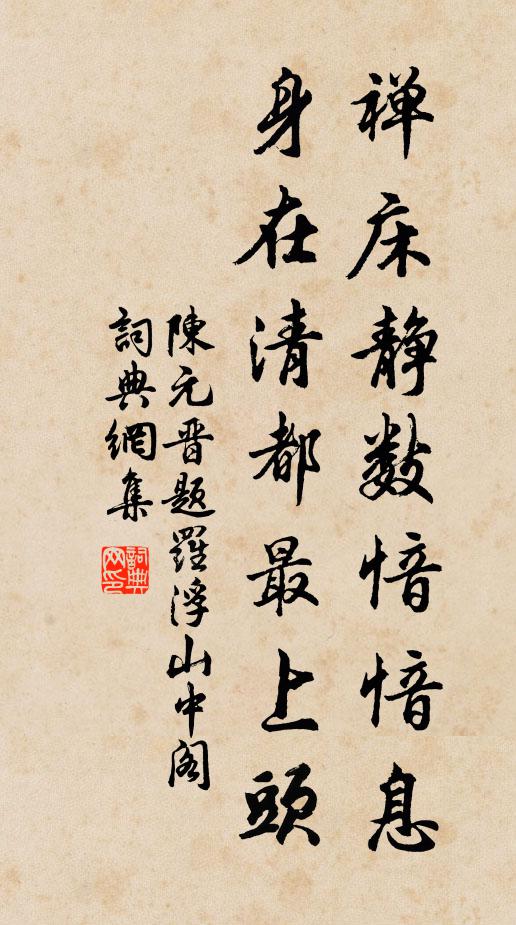 禅床静数愔愔息
身在清都最上頭
陳元晋題羅浮山中阁
詞典網集
詞典网印